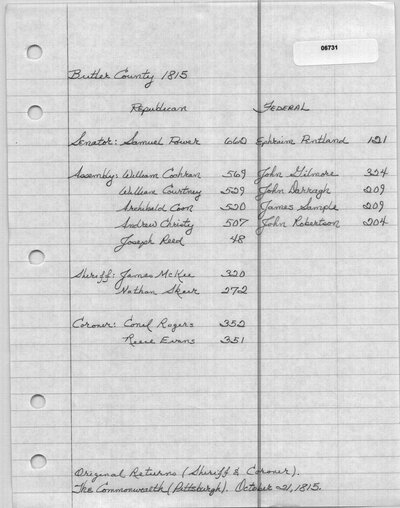 06731
Butler County 1815
Republican FEDERAL
Senator: Samuel Power 660 Ephraim Pentland 121
Assembly: William Cochran 569 John Gilmore 324
William Courtney 529 John Darragh 209
Archibald Coon 520 James Sample 209
Andrew Christy 507 John Robertson 204
Joseph Reed 48
Sheriff: James McKee 320
Nathan Skeer 272
Coroner: Conel Rogers 352
Reese Evans 351
Original Returns (Sheriff & Coroner).
The Commonwealth (Pittsburgh). October 21, 1815.